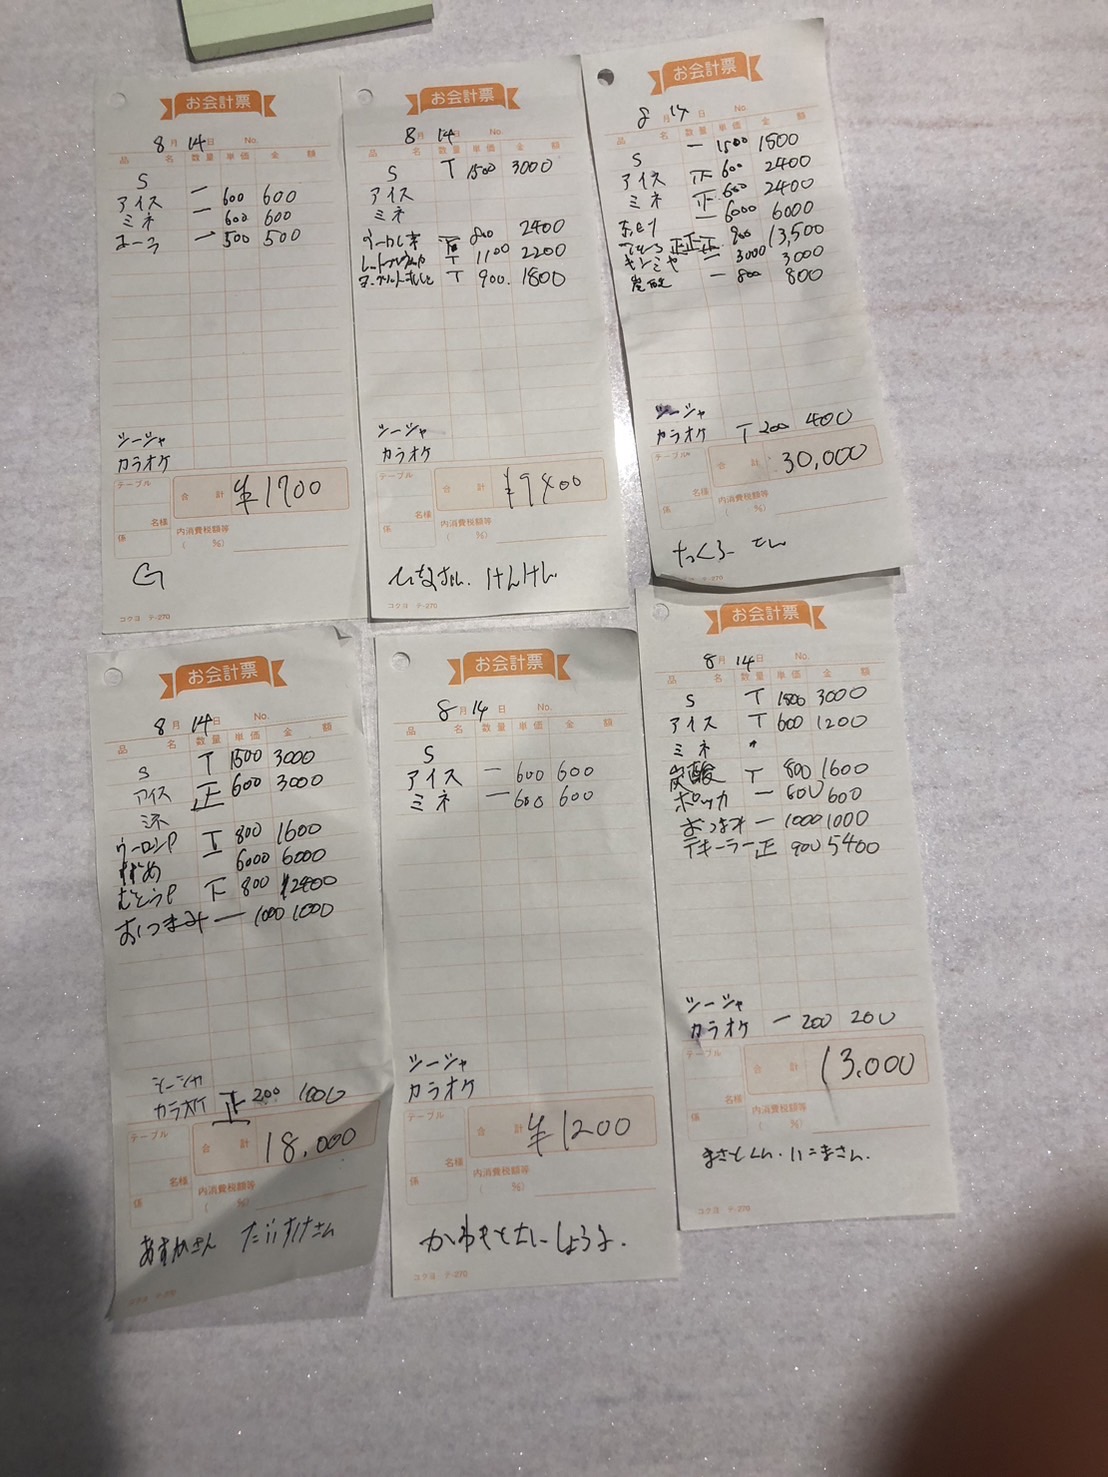 お会計票
8月 14日 No.
品 名 数量 単価 金 額
S
アイス 一 600 600
ミネ 一 600 600
コーラ 一 500 500
シーシャ
カラオケ
テーブル
合 計 ¥1700
名様
係
内消費税額等
( %)
G
コクヨ テ-270
お会計票
8月 14日 No.
品 名 数量 単価 金 額
S T 1500 3000
アイス
ミネ
800 2400
T 1100 2200
T 900. 1800
シーシャ
カラオケ
テーブル
合 計 ¥9400
名様
係
内消費税額等
( %)
けんけん
コクヨ テ-270
お会計票
8月 14日 No.
品 名 数量 単価 金 額
S 一 1500 1500
アイス 600 2400
ミネ 600 2400
一 6000 6000
正正正 900 13,500
キンミヤ 一 3000 3000
炭酸 一 800 800
シーシャ
カラオケ T 200 400
テーブル
合 計 30,000
名様
係
内消費税額等
( %)
お会計票
8月 14日 No.
品 名 数量 単価 金 額
S T 1500 3000
アイス 正 600 3000
ミネ
ウーロンP T 800 1600
一 6000 6000
むとうP 下 800 2400
おつまみ 一 1000 1000
シーシャ
カラオケ 正 200 1000
テーブル
合 計 18,000
名様
係
内消費税額等
( %)
あすかさん たいすけさん
コクヨ テ-270
お会計票
8月 14日 No.
品 名 数量 単価 金 額
S
アイス 一 600 600
ミネ 一 600 600
シーシャ
カラオケ
テーブル
合 計 ¥1200
名様
係
内消費税額等
( %)
コクヨ テ-270
お会計票
8月 14日 No.
品 名 数量 単価 金 額
S T 1500 3000
アイス T 600 1200
ミネ
炭酸 T 800 1600
ポッカ 一 600 600
おつまみ 一 1000 1000
テキーラ 正 900 5400
シーシャ
カラオケ 一 200 200
テーブル
合 計 13,000
名様
係
内消費税額等
( %)
まさとくん・
コクヨ テ-270